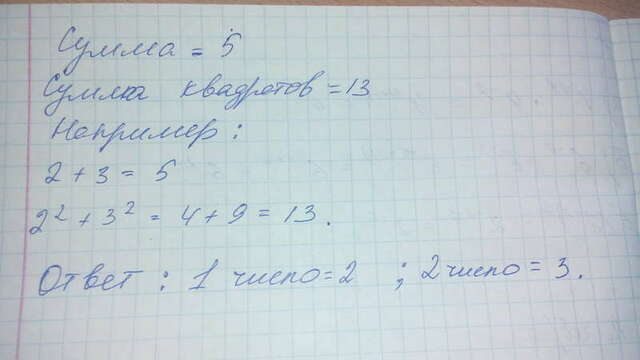 Сумма = 5
Сумма квадратов = 13
Например:
2 + 3 = 5
2² + 3² = 4 + 9 = 13.
Ответ: 1 число = 2 ; 2 число = 3.